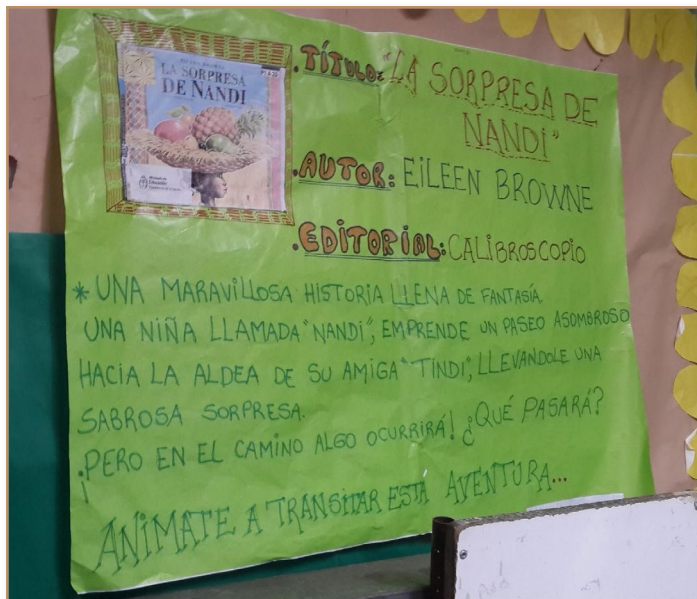 LA SORPRESA
DE NANDI
.TÍTULO: "LA SORPRESA DE
NANDI"
.AUTOR: EILEEN BROWNE
.EDITORIAL: CALIBROSCOPIO
* UNA MARAVILLOSA HISTORIA LLENA DE FANTASÍA.
UNA NIÑA LLAMADA "NANDI", EMPRENDE UN PASEO ASOMBROSO
HACIA LA ALDEA DE SU AMIGA "TINDI", LLEVANDOLE UNA
SABROSA SORPRESA.
¡PERO EN EL CAMINO ALGO OCURRIRÁ! ¿QUÉ PASARÁ?
ANIMATE A TRANSITAR ESTA AVENTURA...